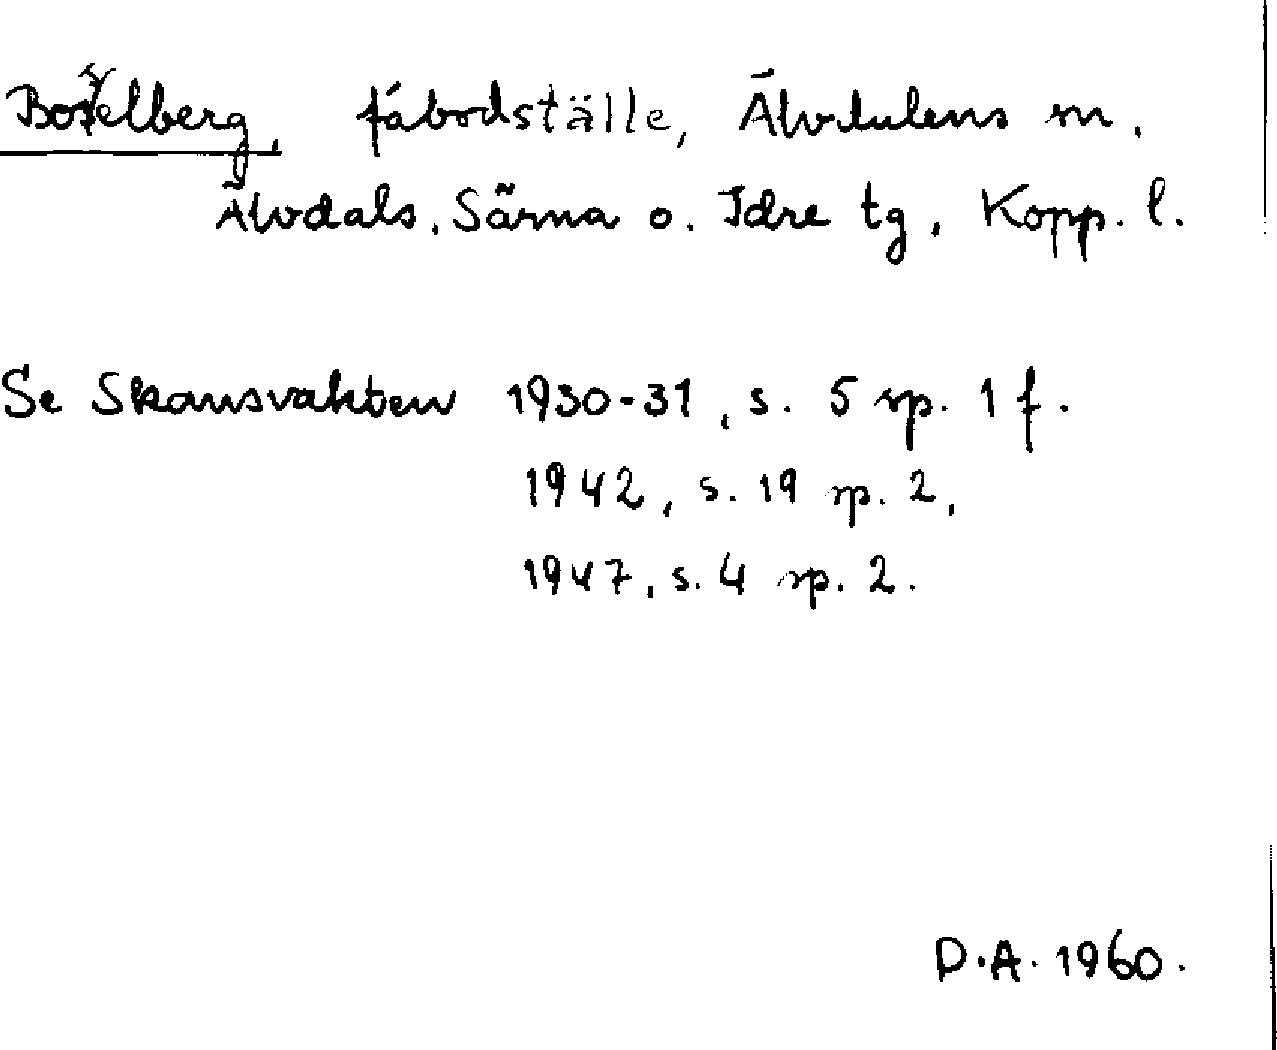 fäbodställe, Älvdalens m.
Älvdals, Särna o. Idre tg, Kopp. l.
Se Skansvakten 1930-31, s. 5 sp. 1 f.
1942, s. 19 sp. 2,
1947, s. 4 sp. 2.
D.A. 1960.